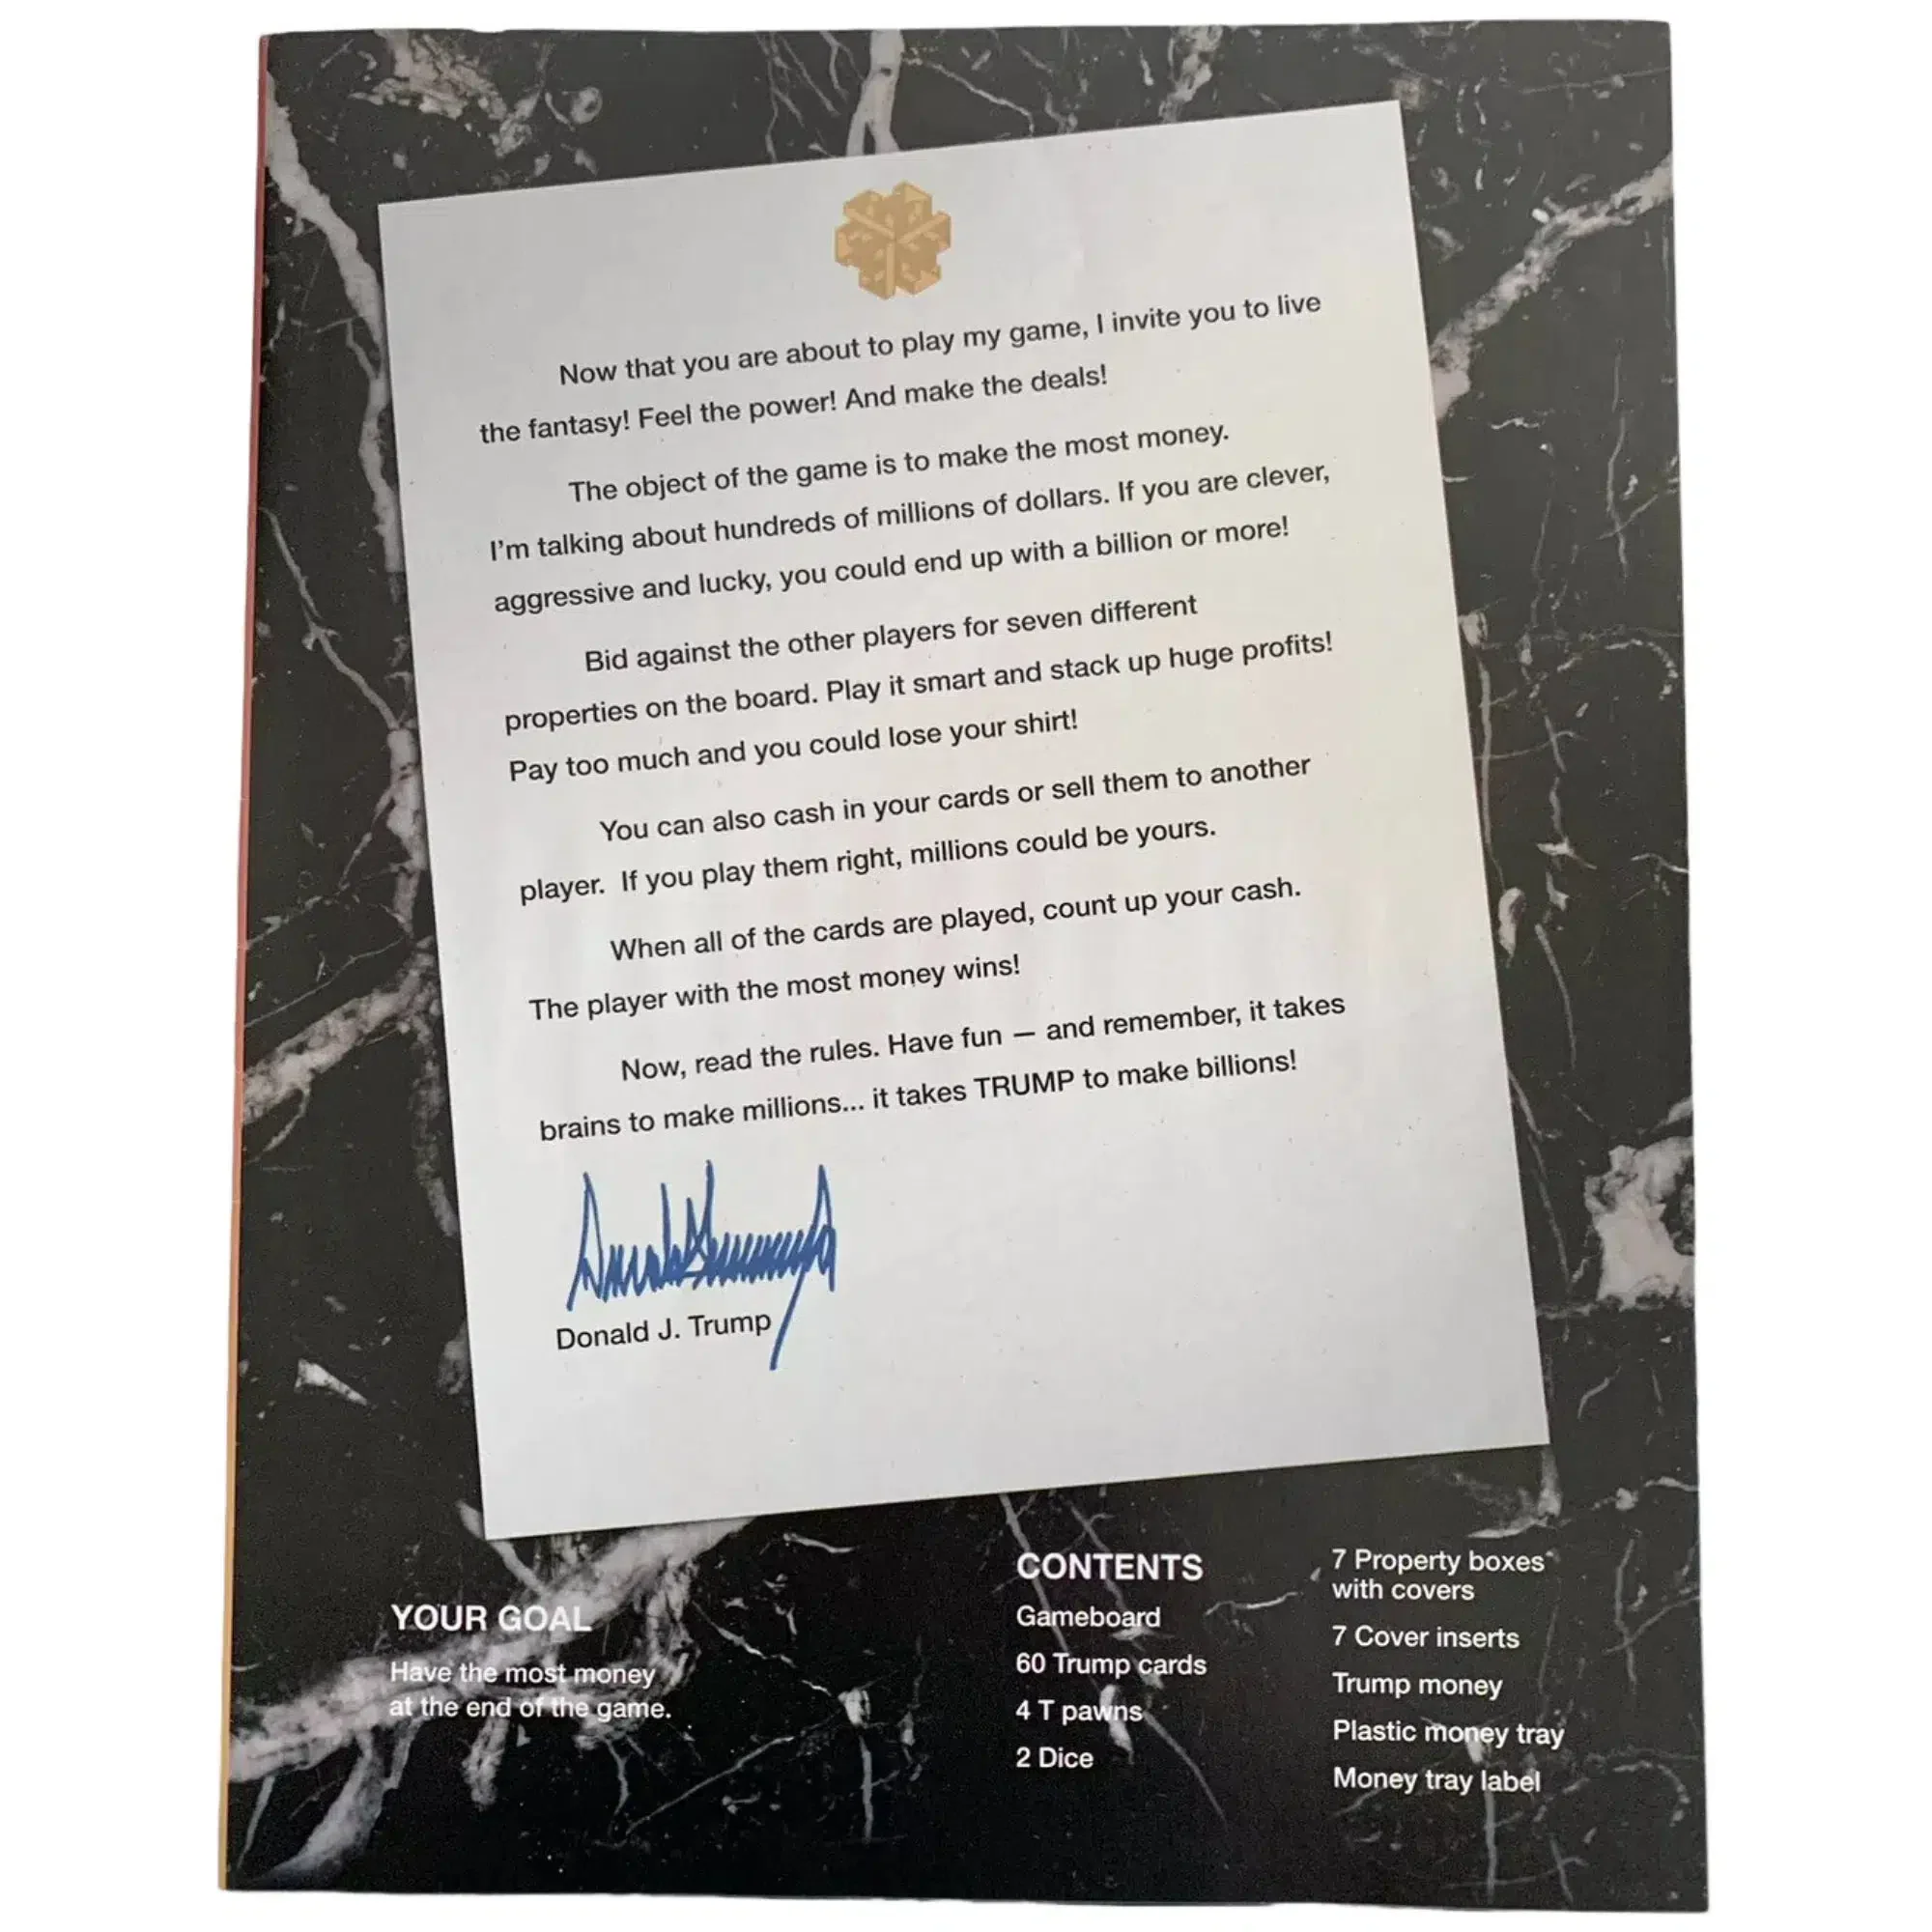 Now that you are about to play my game, I invite you to live
the fantasy! Feel the power! And make the deals!
The object of the game is to make the most money.
I'm talking about hundreds of millions of dollars. If you are clever,
aggressive and lucky, you could end up with a billion or more!
Bid against the other players for seven different
properties on the board. Play it smart and stack up huge profits!
Pay too much and you could lose your shirt!
You can also cash in your cards or sell them to another
player. If you play them right, millions could be yours.
When all of the cards are played, count up your cash.
The player with the most money wins!
Now, read the rules. Have fun — and remember, it takes
brains to make millions... it takes TRUMP to make billions!
Donald J. Trump
YOUR GOAL
Have the most money
at the end of the game.
CONTENTS
Gameboard
60 Trump cards
4 T pawns
2 Dice
7 Property boxes
with covers
7 Cover inserts
Trump money
Plastic money tray
Money tray label